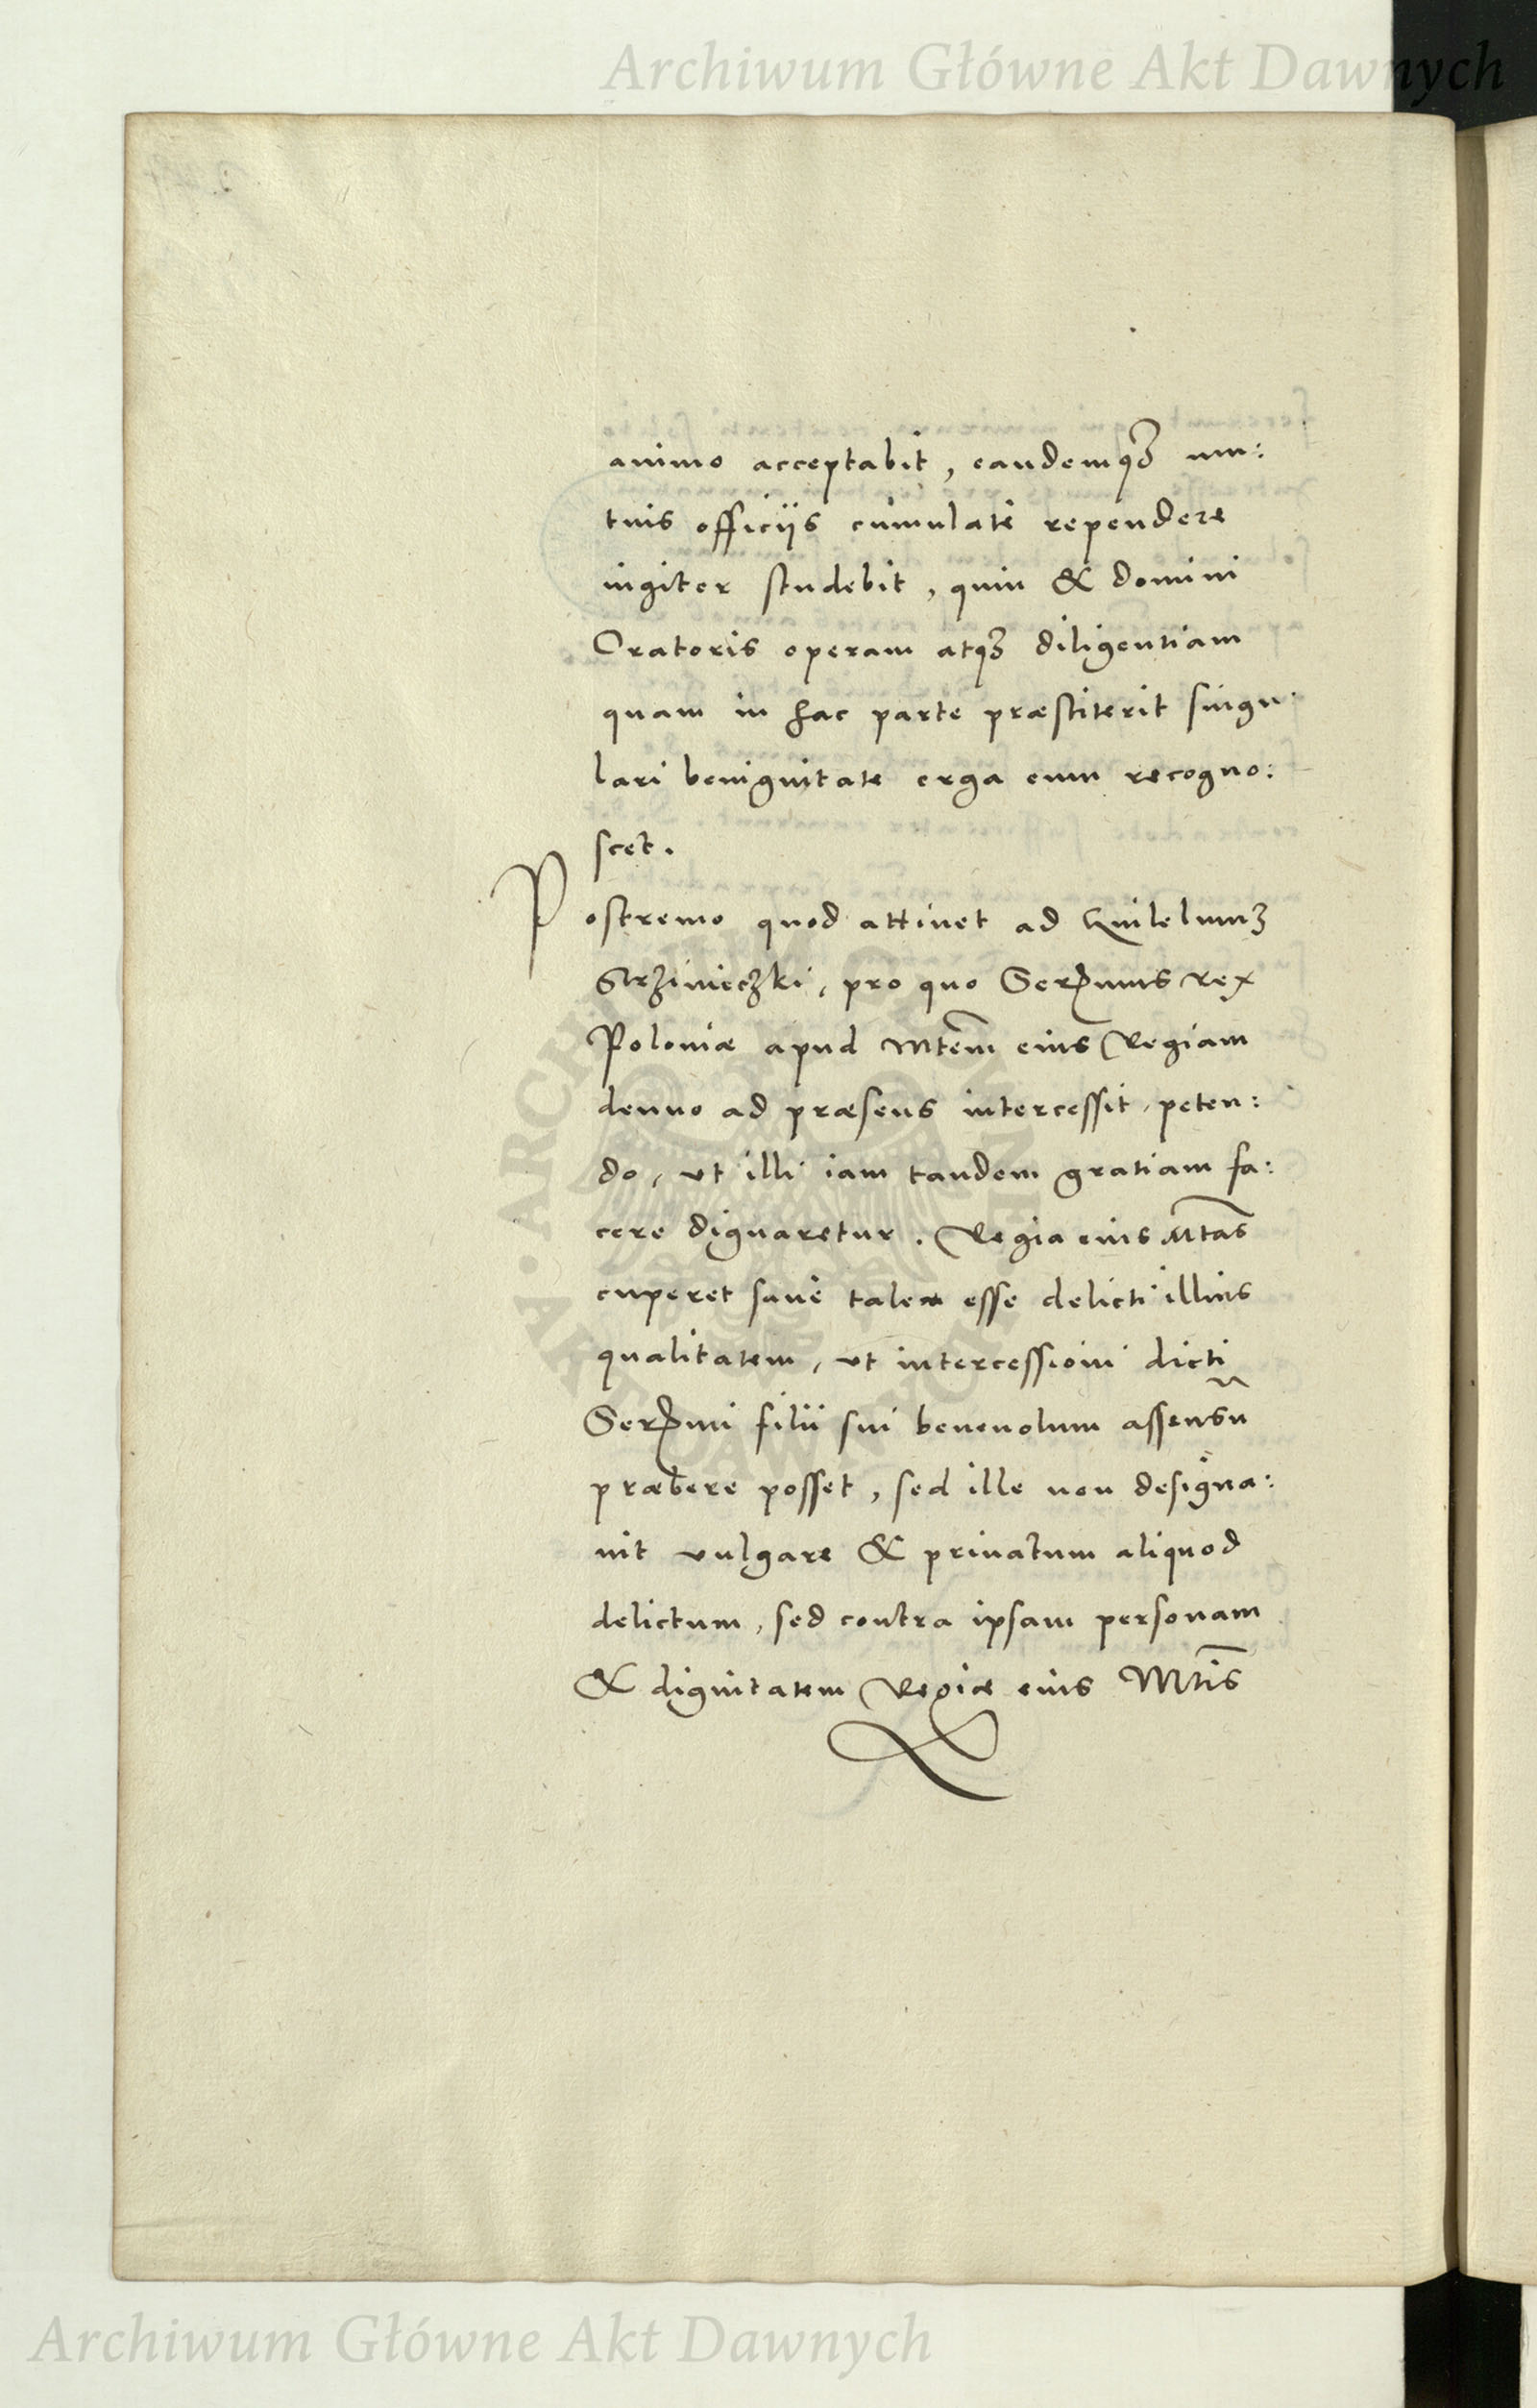 Archiwum Główne Akt Dawnych
animo acceptabit, eandemq3 mu:
tuis officijs cumulatè rependere
iugiter studebit, quin & domini
Oratoris operam atq3 diligentiam
quam in hac parte præstiterit singu:
lari benignitate erga eum recogno:
scet.
Postremo quod attinet ad Guilelmum
pro quo Serᵐus Rex
Poloniæ apud Mtem̄ eius Regiam
denuo ad præsens intercessit, peten:
do, ut illi iam tandem gratiam fa:
cere dignaretur. Regia eius Mtas̄
cuperet sanè talem esse delicti illius
qualitatem, ut intercessioni dicti
Serᵐi filii sui beneuolum assensū
præbere posset, sed ille non designa:
uit vulgare & priuatum aliquod
delictum, sed contra ipsam personam
& dignitatem Regiæ eius Mtis̄
Archiwum Główne Akt Dawnych